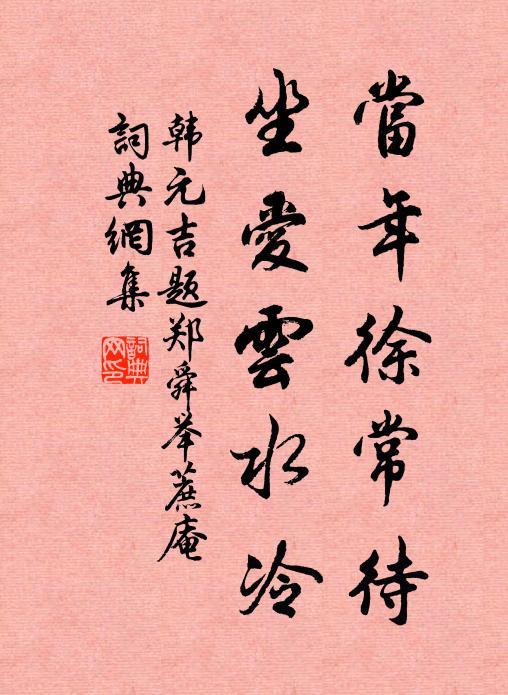 當年徐常待
坐愛雲水冷
韩元吉题郑舜举蔗庵
詞典網集
詞典網印